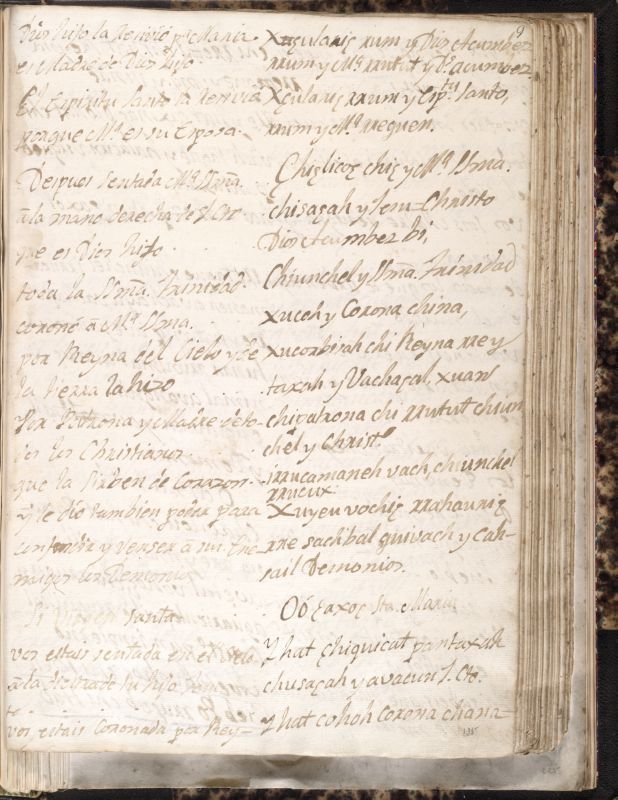 9
Dios hijo la Resivió pr. Maria
es Madre de Dios hijo
El Espiritu Santo la Resivio
porque Ma. es su Esposa.
Despues sentada Ma. SSma.
â la mano derecha de J. Cto
que es Dios hijo.
toda la SSma. Trinidad
coronó â Ma. SSma.
por Reyna del Cielo y de
la tierra la hizo
Por Patrona y Madre de to-
dos los Christianos.
que la sirben de Corazon.
y le dio tambien poder para
y venser â mi Ene-
migos los Demonios
Virgen Santa
vos estais sentada en el Cielo
â la de tu hijo
to.
vos estais Coronada por Rey-
Xuçulariç rum y Dios Acumbez
rrum y Ma. rrutut y Ds. acumbez
Xçulariç rrum y Esptu. Santo,
rrum y Ma. rrequen.
Chiçlicoç chiç y Ma. SSma.
chisaçah y Jesu-Christo
Dios Acumbez bi,
Chiunchel y SSma. Trinidad
xucoh y Corona china,
xucorbisah chi Reyna rre y
taxah y Vachaçal, xuan
chipatrona chi rrutut chiun
chel y Christo
irrucamaneh vach, chiunchel
rrucux.
Xuyeu vochiç rrahauriç
rre sachibal quivach y Cah-
sail Demonios.
Oó çaxoç Sta. Maria
Yhat chiquicat pan taxah
chusaçah y avacun J. Cto.
Yhat cohoh Corona chana
135
225